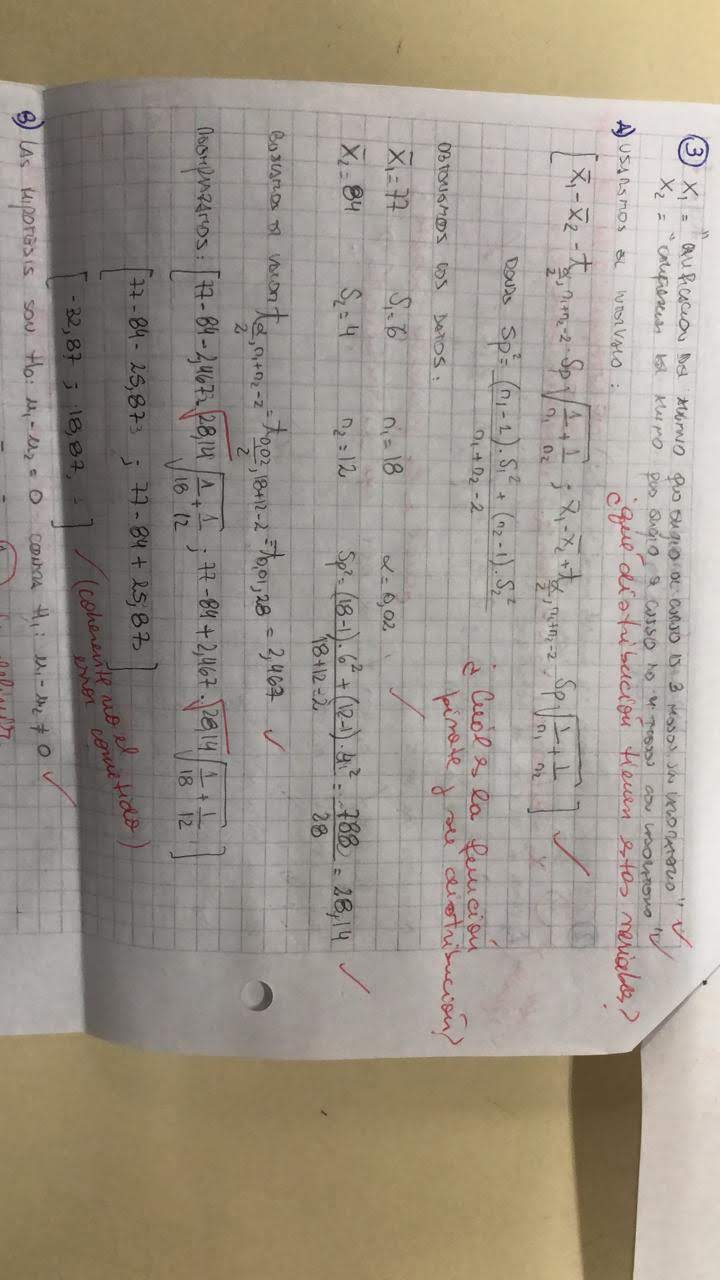 ③ X₁ = "CALIFICACION DEL ALUMNO QUE ELIGIO EL CURSO DE 3 HORAS SIN LABORATORIO"
X₂ = "CALIFICACION DEL ALUMNO QUE ELIGIO EL CURSO DE 4 HORAS CON LABORATORIO"
¿qué distribución tienen estas variables?
A) USAREMOS EL INTERVALO:
[X̄₁-X̄₂-t_{α/2, n₁+n₂-2}·Sp√(1/n₁+1/n₂) ; X̄₁-X̄₂+t_{α/2, n₁+n₂-2} Sp√(1/n₁+1/n₂)]
DONDE Sp²=((n₁-1).S₁²+(n₂-1).S₂²)/(n₁+n₂-2)
¿Cuál es la función
pivote y su distribución?
OBTENEMOS LOS DATOS:
X̄₁=77 S₁=6 n₁=18 α=0,02
X̄₂=84 S₂=4 n₂=12 Sp²=((18-1).6²+(12-1).4²)/(18+12-2)=788/28=28,14
BUSCAMOS EL VALOR t_{α/2, n₁+n₂-2}=t_{0,02/2, 18+12-2}=t_{0,01, 28}=2,467
REEMPLAZAMOS: [77-84-2,467·√28,14 √(1/18+1/12) ; 77-84+2,467·√28,14 √(1/18+1/12)]
[77-84-25,873 ; 77-84+25,873]
[-32,87 ; 18,87]
(coherente no el
error cometido)
B) LAS HIPOTESIS SON H₀: μ₁-μ₂=0 CONTRA H₁: μ₁-μ₂≠0